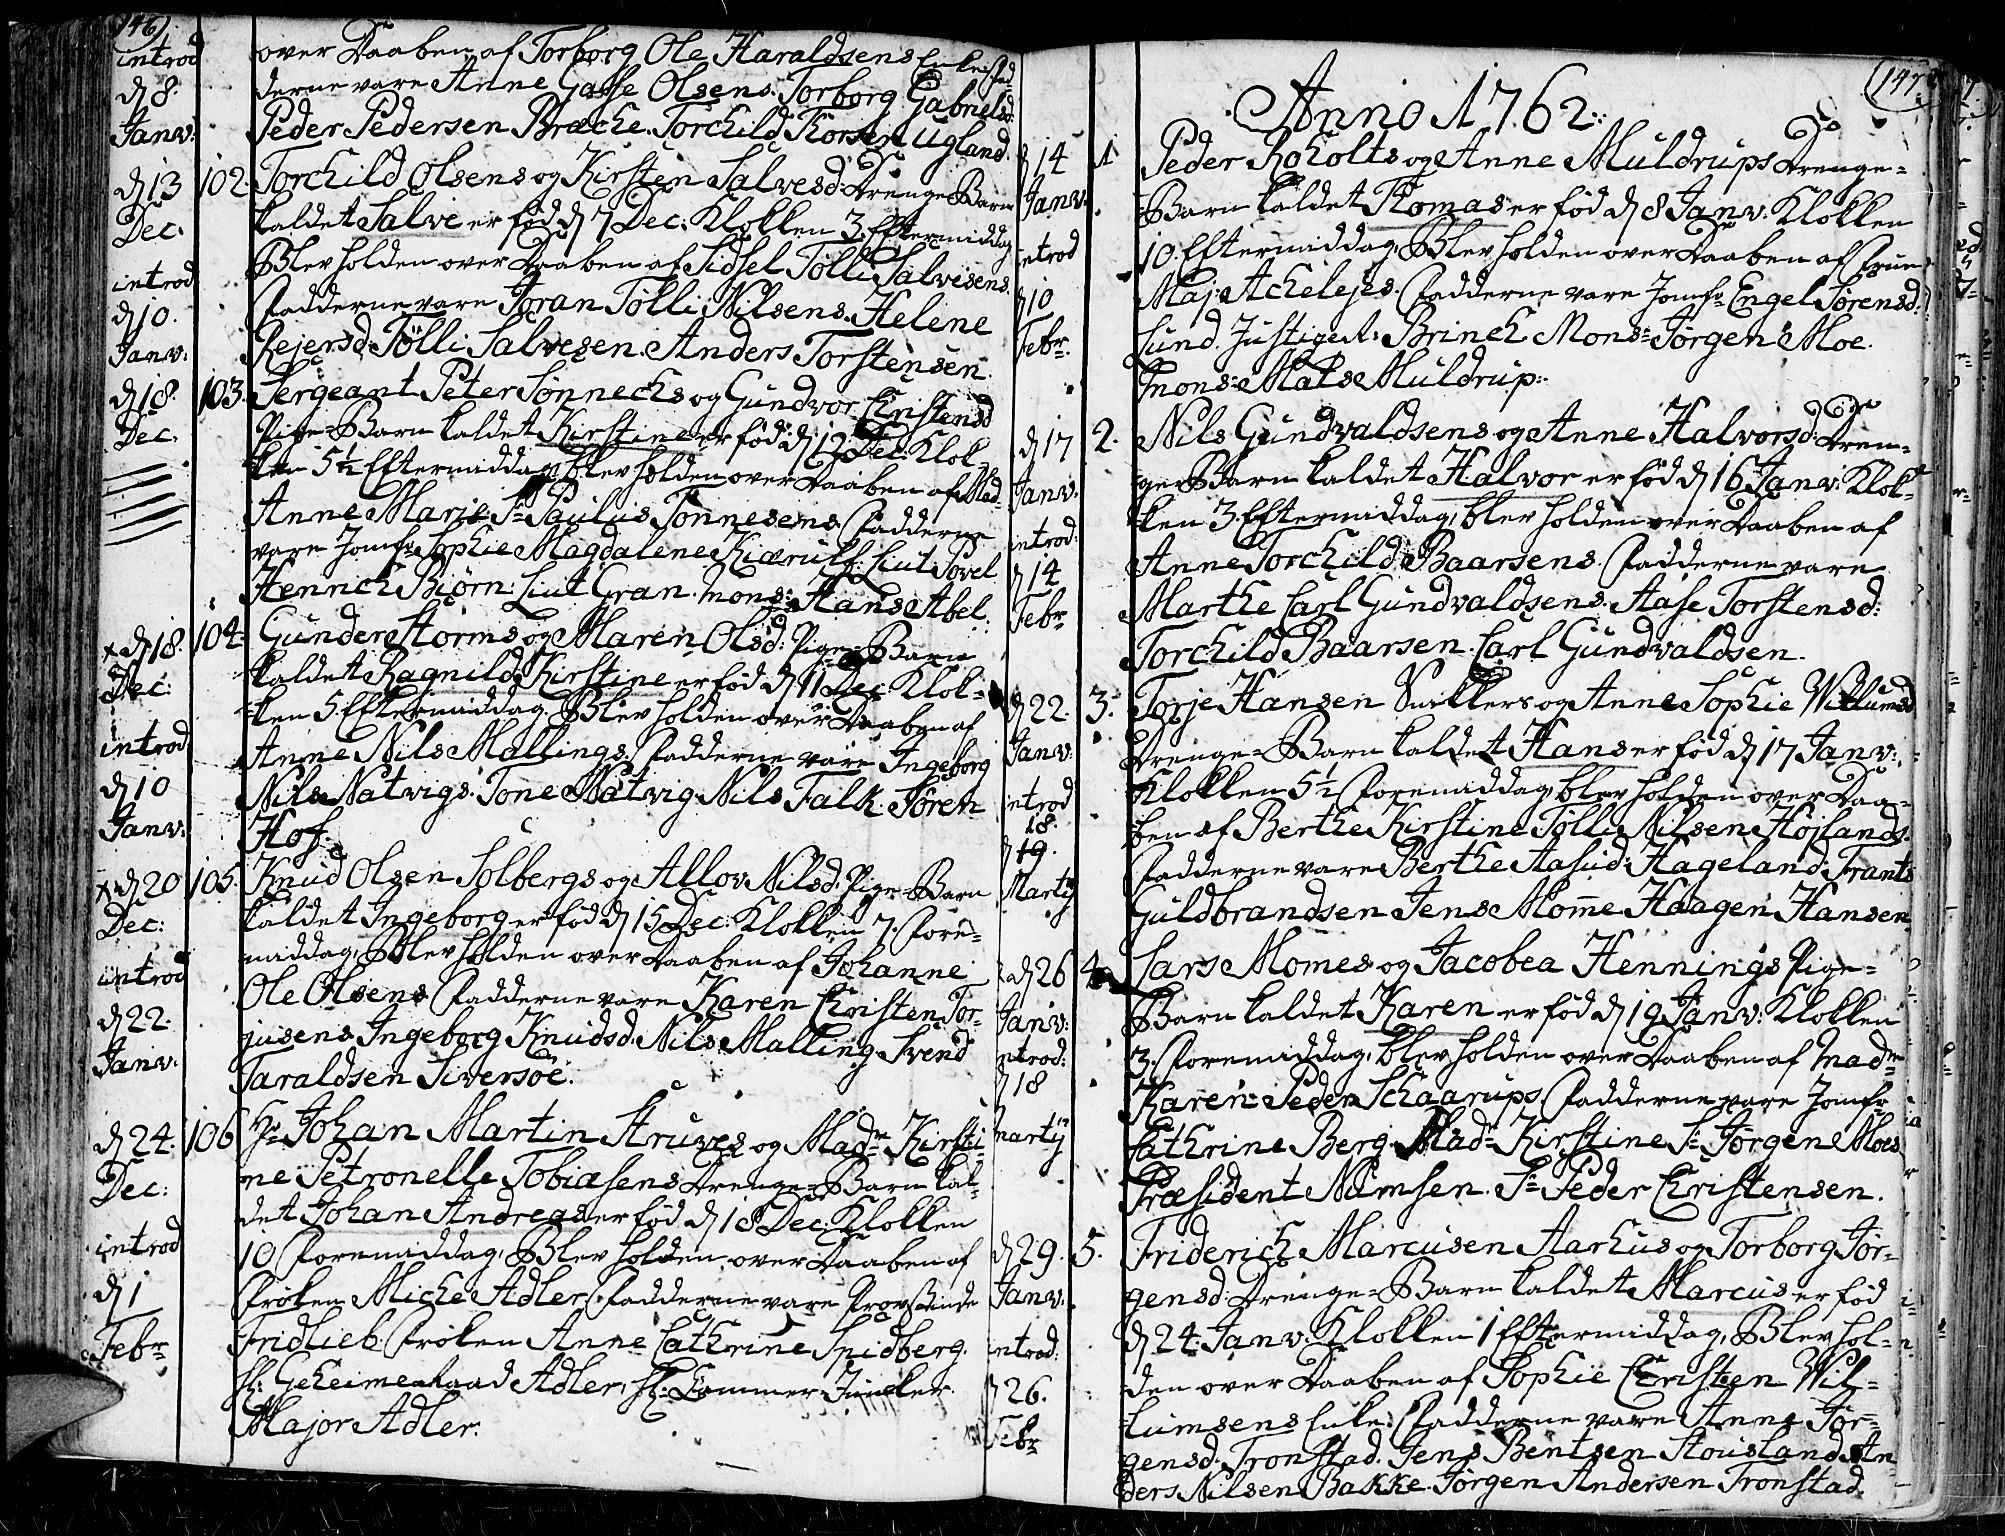 146
introd
d 8.
Janv:
over Daaben af Torborg Ole Haraldsens Enke: Fad-
derne vare Anne Gasse Olsens. Torborg Gabrielsd.
Peder Pedersen Bræche. Torchild Thorsen Ugland.
d 13 Dec. introd d 10. Janv:
102. Torchild Olsens og Kirsten Salvesd: Drenge-Barn
kaldet Salve er fød d 7 Dec: Klokken 3. Eftermiddag
Blev holden over Daaben af Sidsel Tolli Salvesens.
Fadderne vare Joran Tolli Nilsens. Helene
Rejersd. Tolli Salvesen. Anders Torstensen.
d 18. Dec.
103. Sergeant Peter Sonnechs og Gundvor Christensd
Pige-Barn kaldet Kirstine er fød d 12 Dec. Klok-
ken 5½ Eftermiddag, blev holden over Daaben af Mad-
Anne Marie Sr Paulus Tonnesens. Fadderne
vare Jomfr Sophie Magdalene Kierulf. Liut Povel
Hennich Biorn. Liut Gran. Mons: Hans Abel.
x d 18. Dec: introd d 10 Janv:
104. Gunder Storms og Maren Olsd: Pige-Barn
kaldet Ragnild Kirstine er fød d 11 Dec Klok-
ken 5 Eftermiddag. Blev holden over Daaben af
Anne Nils Mallings. Fadderne vare Ingeborg
Nils Natvigs. Tone Natvig. Nils Falk. Soren
Hof.
x d 20 Dec: introd d 22. Janv:
105. Knud Olsen Solbergs og Allov Nilsd. Pige-Barn
kaldet Ingeborg er fød d 15 Dec: Klokken 7. Fore-
middag, Blev holden over Daaben af Johanne
Ole Olsens. Fadderne vare Karen Christen Tor-
jusens. Ingeborg Knudsd. Nils Malling. Svend
Taraldsen Siversoe.
d 24. Dec: introd d 1 Febr
106 Hr Johan Martin Struves og Madm Kirsti-
ne Petronelle Tobiasens Drenge-Barn kal-
det Johan Andreas er fød d 18 Dec: Klokken
10 Foremiddag, Blev holden over Daaben af
Frøken Miche Adler. Fadderne vare Provstinde
Fridlieb. Frøken Anne Cathrine Spidberg.
H: Geheimeraad Adler, H: Cammer Juncker.
Major Adler.
147.
Anno 1762.
d 14 Janv. introd d 10 Febr.
1 Peder Roholts og Anne Muldrups Drenge-
Barn kaldet Thomas er fød d 8 Janv. Klokken
10. Eftermiddag, Blev holden over Daaben af Frue
Maj: Achelejes. Fadderne vare Jomfr Engel Sorensd.
Lund. Justiger. Brinch. Mons: Jorgen Moe.
Mons: Mats Muldrup.
d 17 Janv. introd: d 14 Febr
2. Nils Gundvaldsens og Anne Halvorsd: Dren-
ge-Barn kaldet Halvor er fød d 16 Janv: Klok-
ken 3. Eftermiddag, blev holden over Daaben af
Anne Torchild Baarsens. Fadderne vare
Marthe Carl Gundvaldsens. Aase Torstensd:
Torchild Baarsen. Carl Gundvaldsen.
d 22. Janv: introd 18. d 19. Martij
3. Torje Hansen Snikkers og Anne Sophie Willumsd
Drenge-Barn kaldet Hans er fød d 17 Janv:
Klokken 5½ Foremiddag, blev holden over Daa-
ben af Berthe Kirstine Tolli Nilsen Hojlands.
Fadderne vare Berthe Aasud: Hageland: Frants
Guldbrandsen. Jens Momme. Haagen Hansen
d 26 Janv: introd: d 18 Martij
4 Lars Momes og Jacobea Hennings Pige-
Barn kaldet Karen er fød d 19 Janv: Klokken
3. Foremiddag, blev holden over Daaben af Madm
Karen Peder Schaarups. Fadderne vare Jomfr
Cathrine Berg. Madm Kirstine Sr Jorgen Moes
Præsident Numsen. Sr Peder Christensen.
d 29. Janv. introd: d 26. Febr
5. Friderich Marcusen Aarhus og Torborg Jor-
gensd: Drenge-Barn kaldet Marcus er fød
d 24. Janv. Klokken 1 Eftermiddag, Blev hol-
den over Daaben af Sophie Christen Wil-
lumsens Enke. Fadderne vare Anne Jor-
gensd. Tronstad. Jens Bentsen Stousland. An
ders Nilsen Bakke. Jorgen Andersen Tronstad.